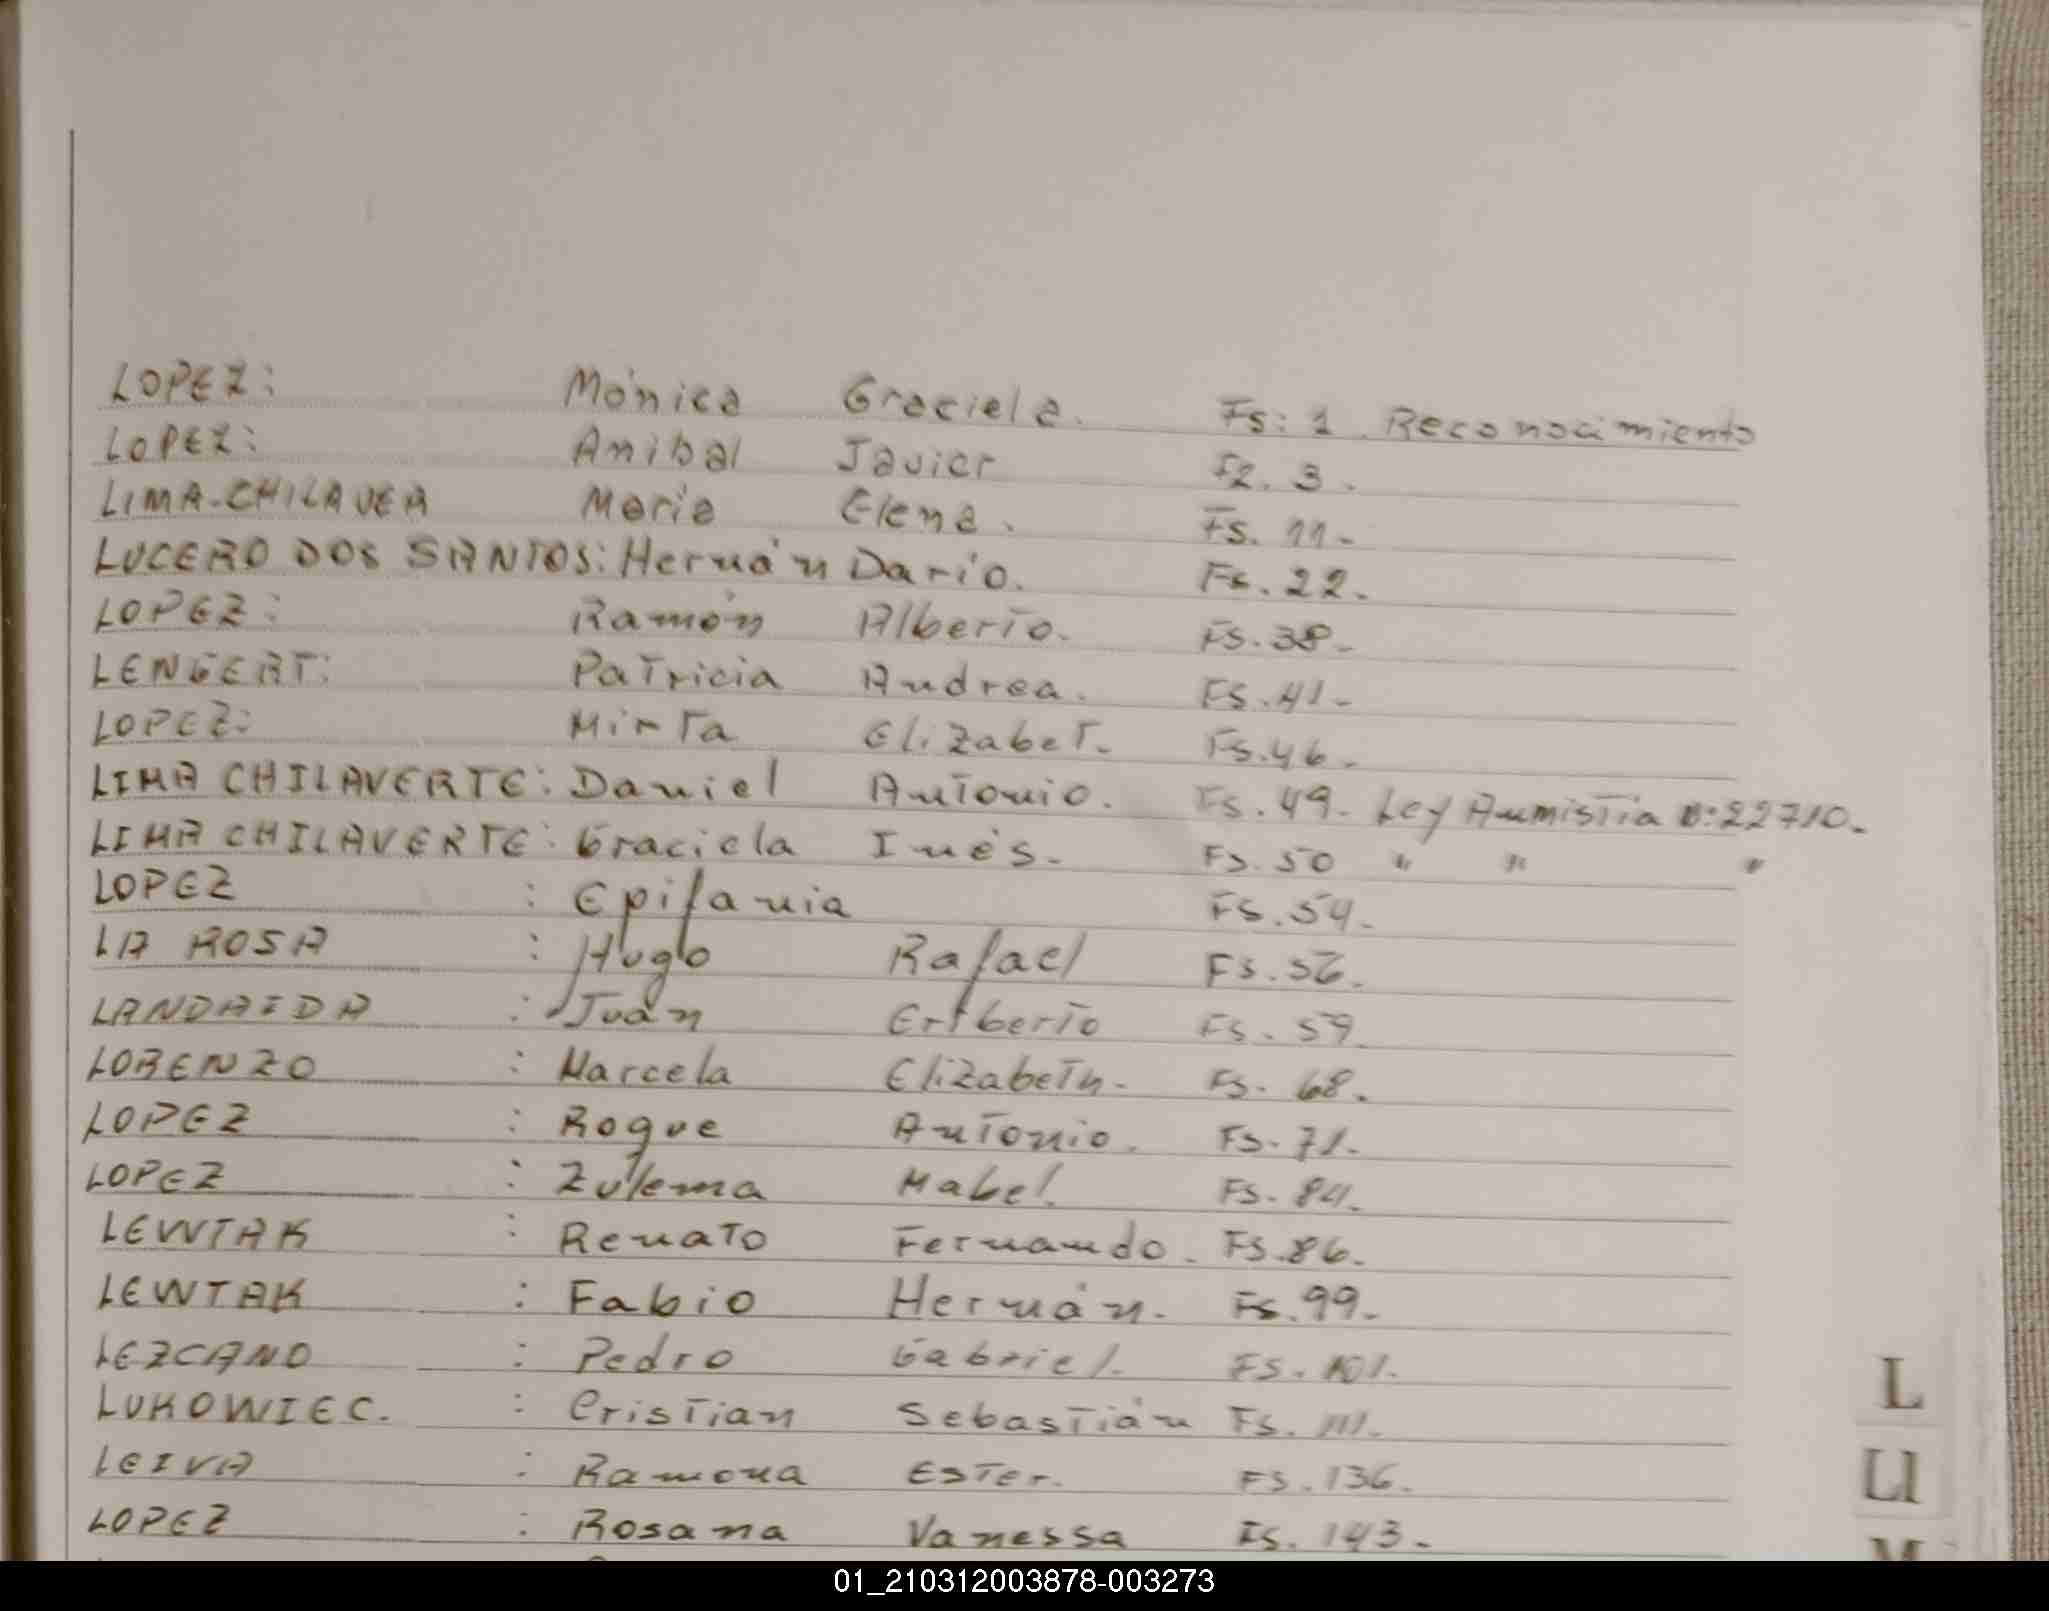 LOPEZ: Mónica Graciela. Fs: 1. Reconocimiento
LOPEZ: Anibal Javier Fz. 3.
LIMA-CHILAVER Maria Elena. Fs. 11-
LUCERO DOS SANTOS: Hernán Darío. Fs. 22.
LOPEZ: Ramón Alberto. Fs. 38-
LENGERT: Patricia Andrea. Fs. 41-
LOPEZ: Mirta Elizabet. Fs. 46-
LIMA CHILAVERTE: Daniel Antonio. Fs. 49- Ley Anmistia n: 22710.
LIMA CHILAVERTE: Graciela Inés- Fs. 50 " " "
LOPEZ : Epifania Fs. 54-
LA ROSA : Hugo Rafael Fs. 56.
LANDAIDA : Juan Eriberto Fs. 59.
LORENZO : Marcela Elizabeth- Fs. 68.
LOPEZ : Roque Antonio. Fs. 71.
LOPEZ : Zulema Mabel. Fs. 84.
LEWTAK : Renato Fernando. Fs. 86.
LEWTAK : Fabio Hernán. Fs. 99-
LEZCANO : Pedro Gabriel. Fs. 101.
LUKOWIEC. : Cristian Sebastián Fs. 111.
LEIVA : Ramona Ester. Fs. 136.
LOPEZ : Rosana Vanessa Fs. 143-
L
LI
M
01_210312003878-003273